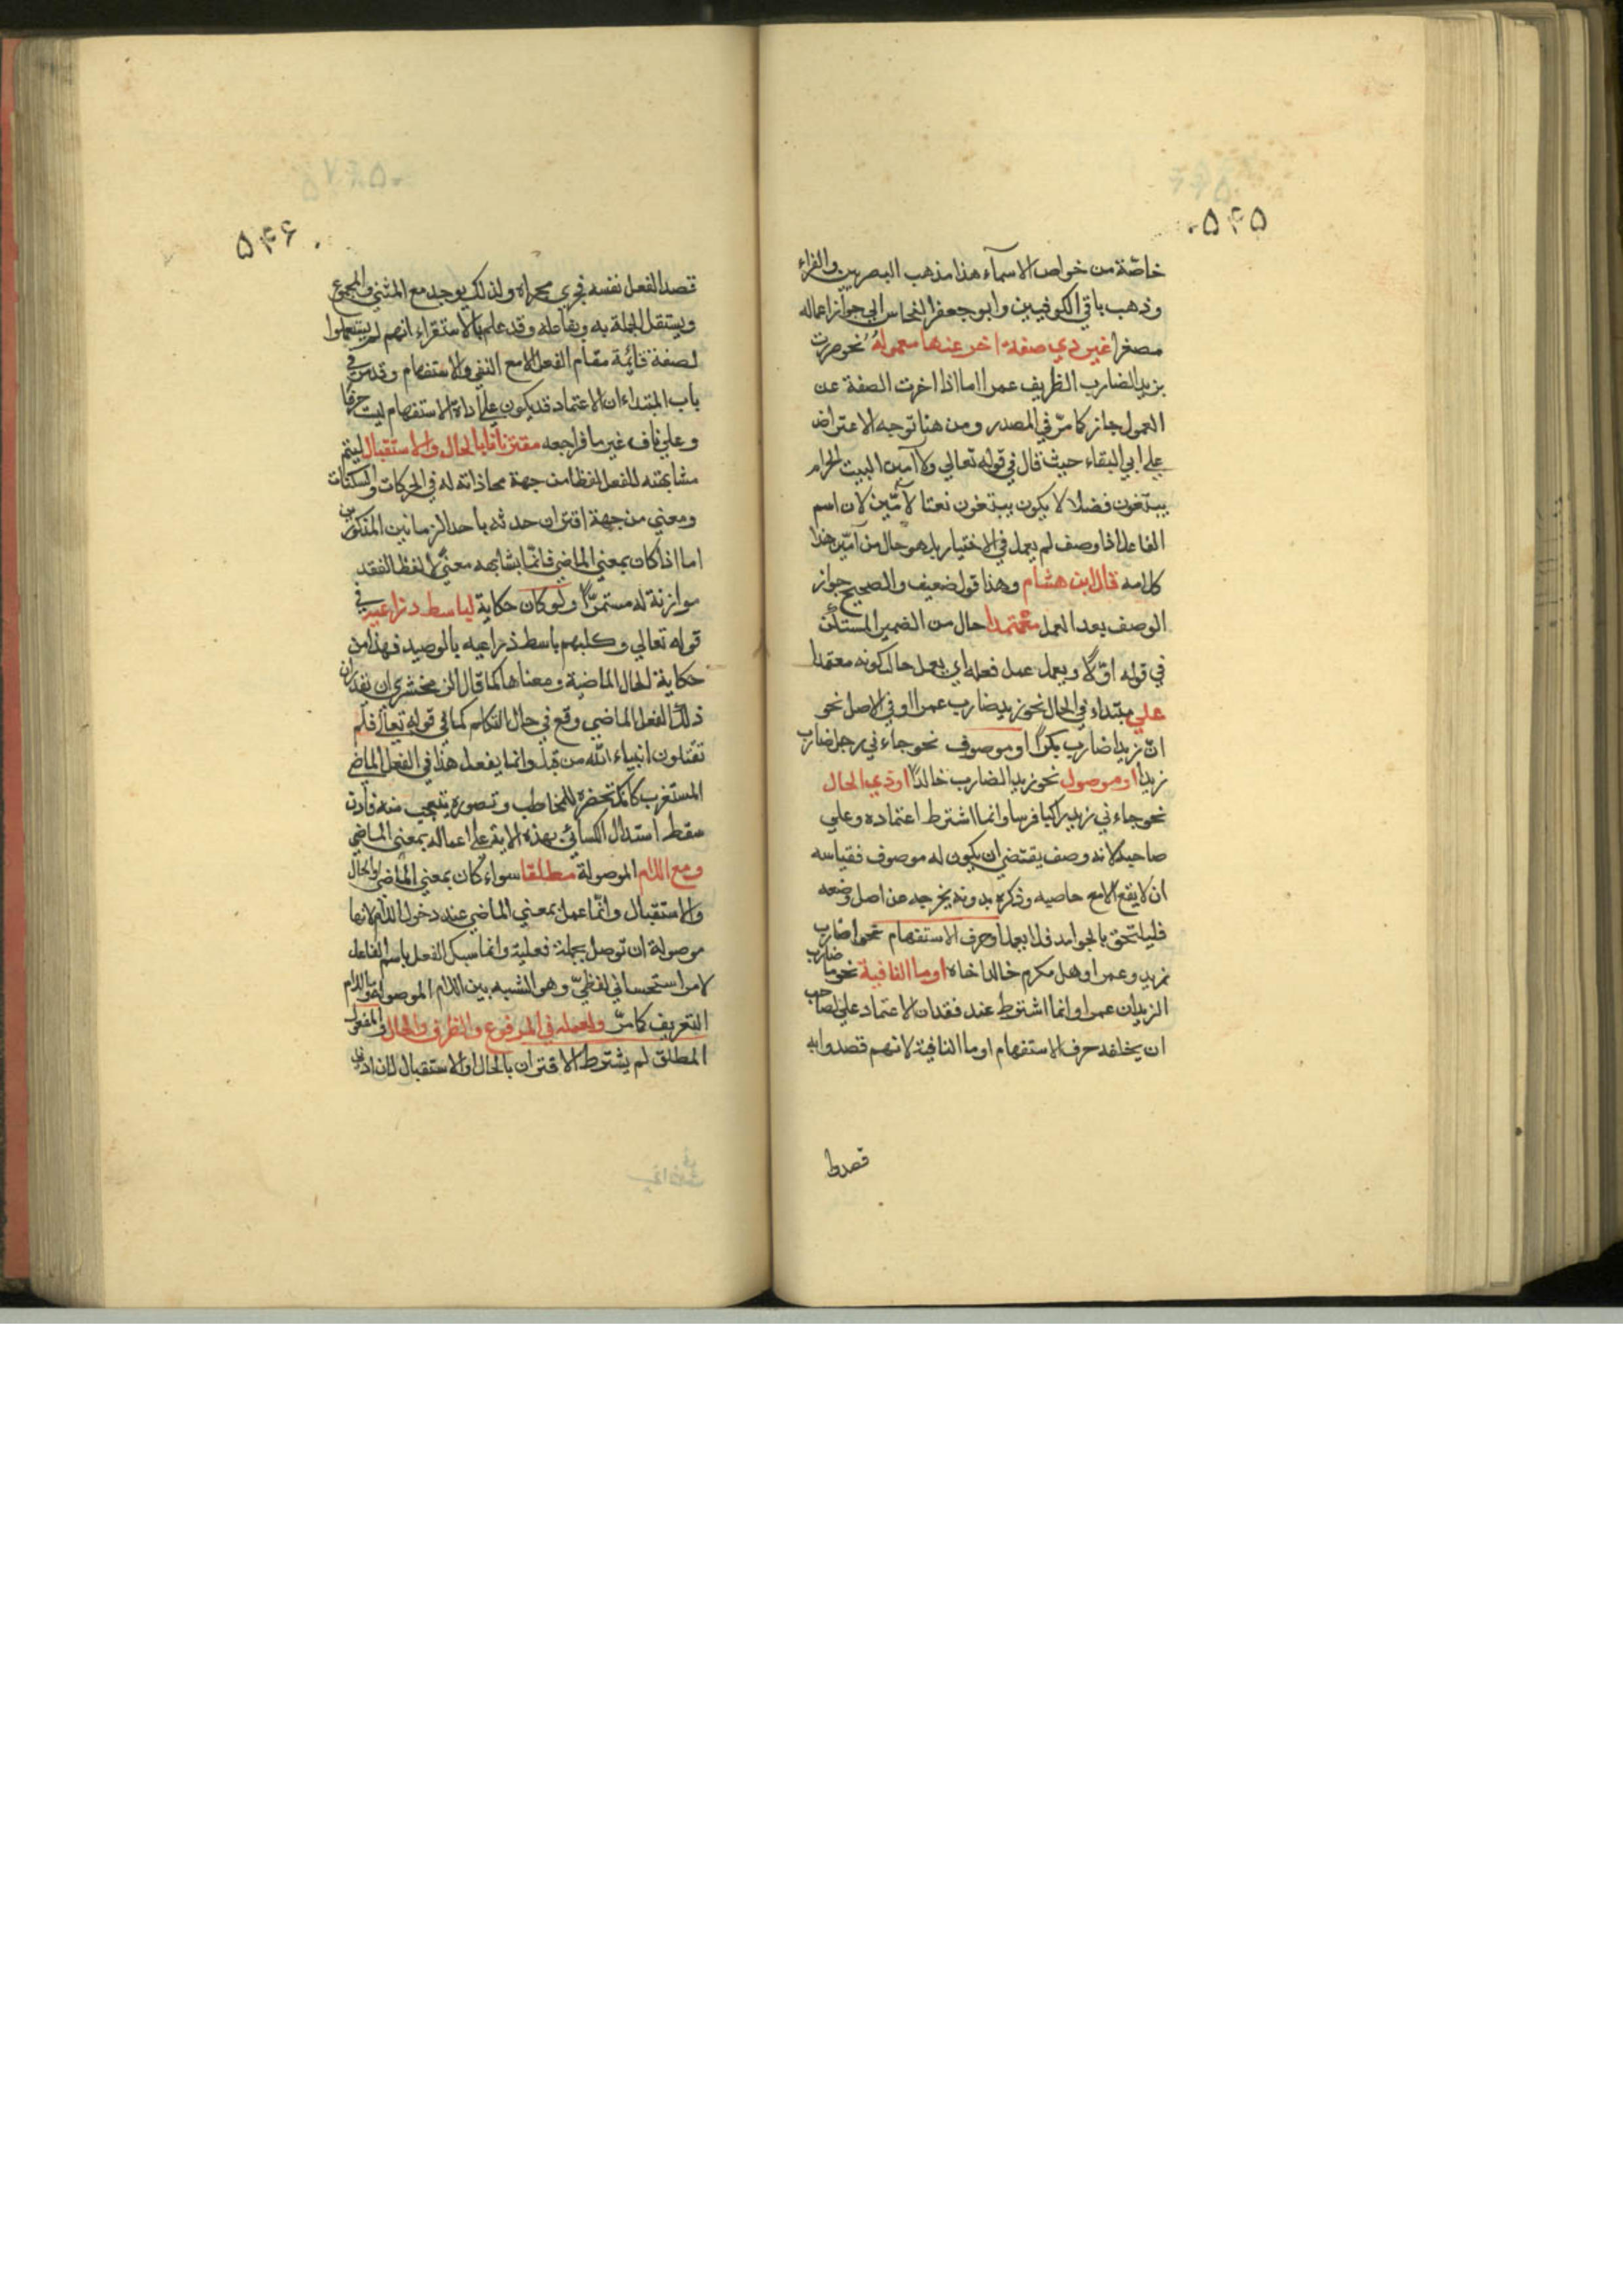 ٥۴٥
خاصّة من خواص الاسمآء هذا مذهب البصريين والفراء
وذهب باقي الكوفيين وابو جعفر النحاس الي جواز اعماله
مصغرا غير ذي صفة اخر عنها معموله نحو مررت
بزيد الضارب الظريف عمرا اما اذا اخرت الصفة عن
المعمول جاز كما مرّ في المصدر ومن هنا توجه الاعتراض
علي ابي البقاء حيث قال في قوله تعالي ولا آمين البيت الحرام
يبتغون فضلا لا يكون يبتغون نعتا لآمّين لان اسم
الفاعل اذا وصف لم يعمل في الاختيار بل هو حال من آمّين هذا
كلامه قال ابن هشام وهذا قول ضعيف والصحيح جواز
الوصف بعد العمل معتمدا حال من الضمير المستكن
في قوله اوّلا ويعمل عمل فعله اي يعمل حال كونه معتمدا
علي مبتداء في الحال نحو زيد ضارب عمرا او في الاصل نحو
انّ زيدا ضارب بكرًا او موصوف نحو جاءني رجل ضارب
زيدا او موصول نحو زيد الضارب خالدًا او ذي الحال
نحو جاءني زيد راكبا فرسا وانما اشترط اعتماده وعلي
صاحبه لانه وصف يقتضي ان يكون له موصوف فقياسه
ان لا يقع الا مع صاحبه وذكره بدونه يخرجه عن اصل وضعه
فيلتحق بالجوامد فلا يعمل او حرف الاستفهام نحو اضارب
زيد وعمرا وهل مكرم خالد اخاه او ما النافية نحو ما ضارب
الزيدان عمرا وانما اشترط عند فقدان الاعتماد علي صاحب
ان يخلفه حرف الاستفهام او ما النافية لانهم قصدوا به
قصد
٥۴۶
قصد الفعل نفسه فجري مجراه ولذلك يوحد مع المثني والمجموع
ويستقل الجملة به وبفاعله وقد علم بالاستقراء انهم لم يستعملوا
لصفة قائمة مقام الفعل الا مع النفي والاستفهام وقد مر في
باب المبتداء ان الاعتماد قد يكون علي اداة الاستفهام ليت حرفا
وعلي ناف غير ما فراجعه مقترنا نا بالحال والاستقبال ليتم
مشابهته للفعل لفظا من جهة محاذاته له في الحركات والسكنات
ومعني من جهة اقتران حدثه باحد الزمانين المذكورين
اما اذا كان بمعني الماضي فانّما يشابهه معنيً لا لفظا لفقد
موازنة له مستمرًّا ولو كان حكاية لباسط ذراعيه في
قوله تعالي وكلبهم باسط ذراعيه بالوصيد فهذا من
حكاية الحال الماضية ومعناها كما قال الزمخشري ان يقدر ان
ذلك الفعل الماضي وقع في حال التكلم كما في قوله تعالي فلم
تقتلون انبياء الله من قبل وانما يفعل هذا في الفعل الماضي
المستغرب كانك تحضره للمخاطب وتصوره ليتعجب منه فاذن
سقط استدلال الكسائي بهذه الاية علي اعماله بمعني الماضي
ومع اللام الموصولة مطلقا سواء كان بمعني الماضي او الحال
والاستقبال وانّما عمل بمعني الماضي عند دخول اللام لانها
موصولة ان توصل بجملة فعلية وانما سبك الفعل باسم الفاعل
لامر استحساني لفظيّ وهو الشبه بين اللام الموصولة واللام
التعريف كما مرّ ولعمله في المرفوع والظرف والحال والمفعول
المطلق لم يشترط الاقتران بالحال او الاستقبال لان